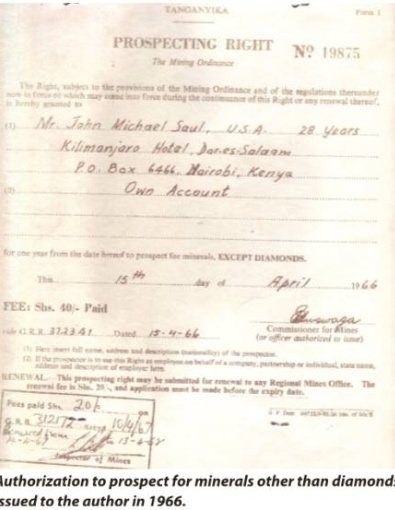 TANGANYIKA
Form 1
PROSPECTING RIGHT
Nº 19875
The Mining Ordinance
The Right, subject to the provisions of the Mining Ordinance and of the regulations thereunder
now in force or which may come into force during the continuance of this Right or any renewal thereof,
is hereby granted to
(1) Mr. John Michael Saul, U.S.A. 28 years
Kilimanjaro Hotel, Dar-es-Salaam
P.O. Box 6466, Nairobi, Kenya
(2) Own Account
for one year from the date hereof to prospect for minerals, EXCEPT DIAMONDS.
This 15th day of April 1966
FEE: Shs. 40/- Paid
vide G.R.R. 372341 Dated 15-4-66
Commissioner for Mines
(or officer authorized to issue)
(1) Here insert full name, address and description (nationality) of the prospector.
(2) If the prospector is to use this Right as employee on behalf of a company, partnership or individual, state name,
address and description of employer here.
RENEWAL.—This prospecting right may be submitted for renewal to any Regional Mines Office. The
renewal fee is Shs. 20/-, and application must be made before the expiry date.
Fees paid Shs. 20/- on
G.R.R. 312172 10/4/67
Inspector of Mines
Authorization to prospect for minerals other than diamonds
issued to the author in 1966.